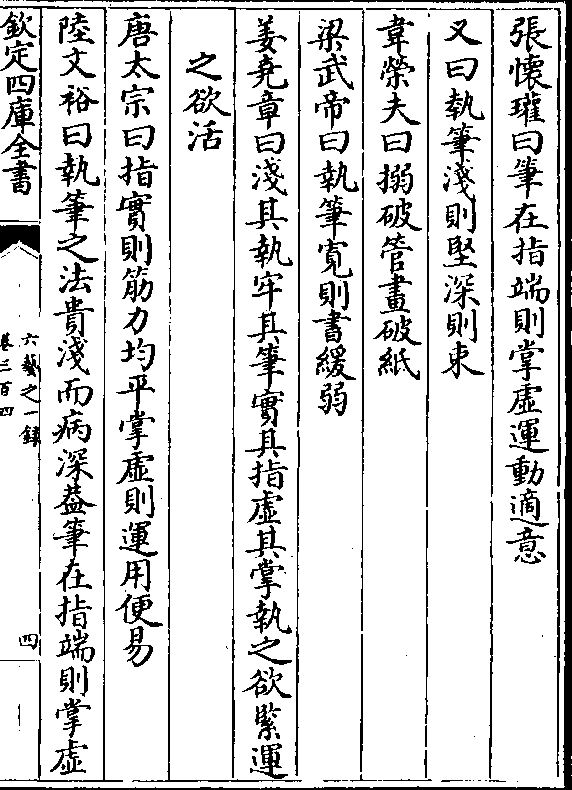 張懷瓘曰筆在指端則掌虛運動適意
又曰執筆淺則堅深則束
韋榮夫曰搦破管畫破紙
梁武帝曰執筆寛則書緩弱
姜堯章曰淺其執牢其筆實其指虛其掌執之欲緊運
之欲活
唐太宗曰指實則筋力均平掌虛則運用便易
陸文裕曰執筆之法貴淺而病深葢筆在指端則掌虛
欽定四庫全書
六藝之一録
卷三百四
四